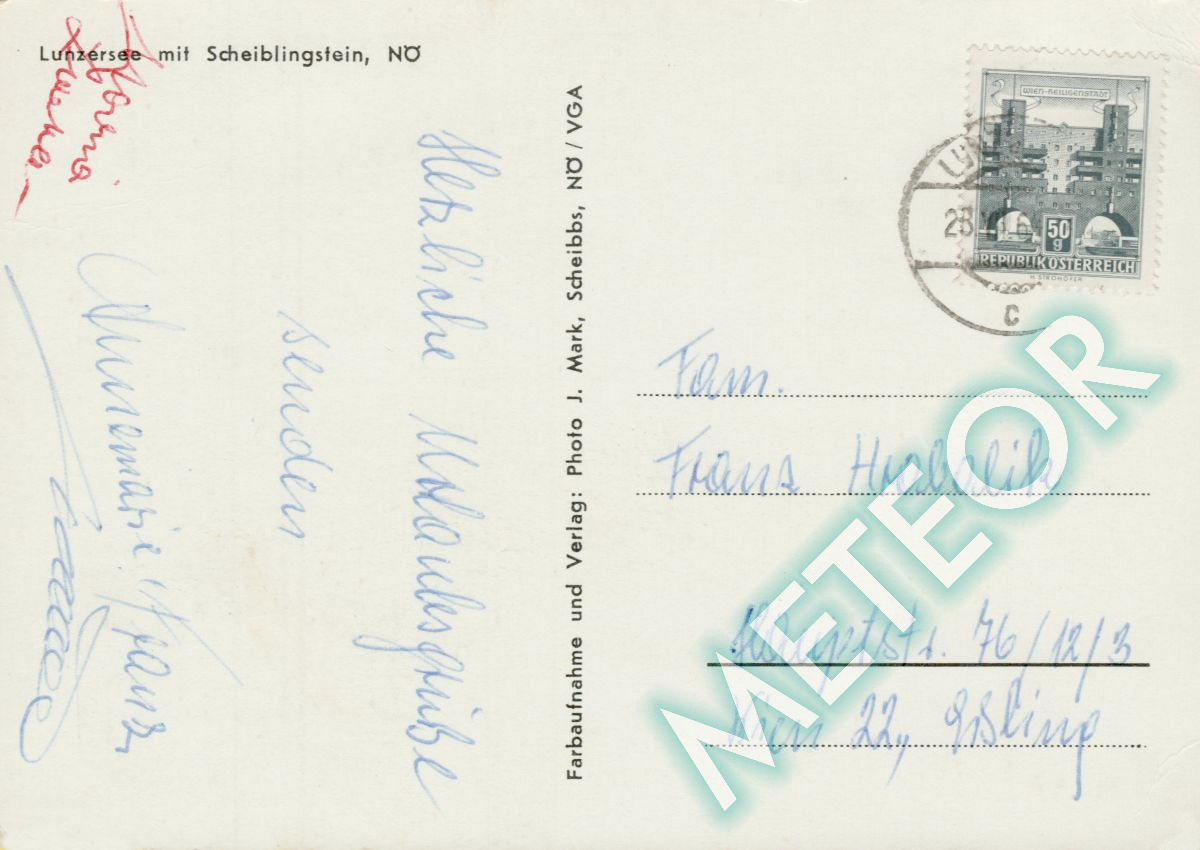 Lunzersee mit Scheiblingstein, NÖ
Herzliche Urlaubsgrüße
senden
Annemarie Franz
Farbaufnahme und Verlag: Photo J. Mark, Scheibbs, NÖ / VGA
WIEN-HEILIGENSTADT
50
g
REPUBLIK ÖSTERREICH
H. STROHOFER
28.
C
Fam.
Franz Hrabalik
Hauptstr. 76/12/3
Wien 22., Eßling
METEOR